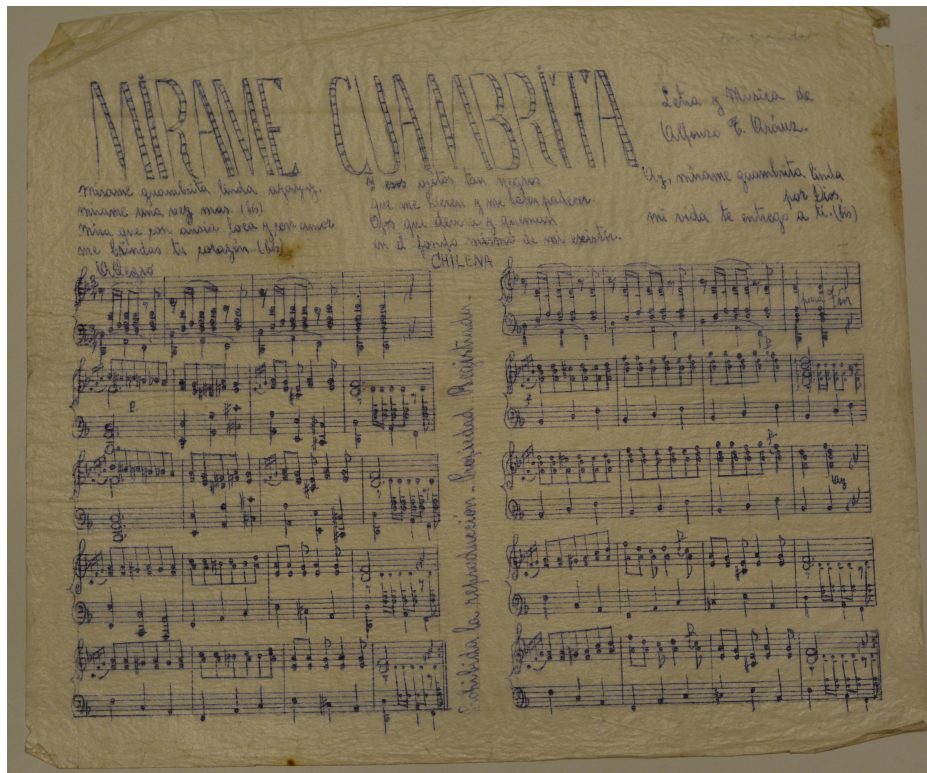 MIRAME GUAMBRITA
Letra y Música de
Alfonso E. Aráuz.
mirame guambrita linda ayayay.
mirame una vez mas. (bis)
mira que con ansia loca y con amor
me brindas tu corazón. (bis)
y ojitos tan negros
que me hieren y me hacen padecer
Ojos que y queman
en el fondo mismo de mi existir.
Ay, mirame guambrita linda
por Dios,
mi vida te entrego a ti. (bis)
Allegro
CHILENA
Prohibida la reproducción. Propiedad Registrada.
Fin